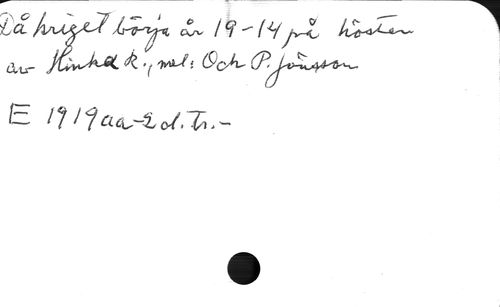 Då kriget börja år 19-14 på hösten
av Hinka R., mel: Och P. Jönsson
E 1919aa-2 d. Tr.-